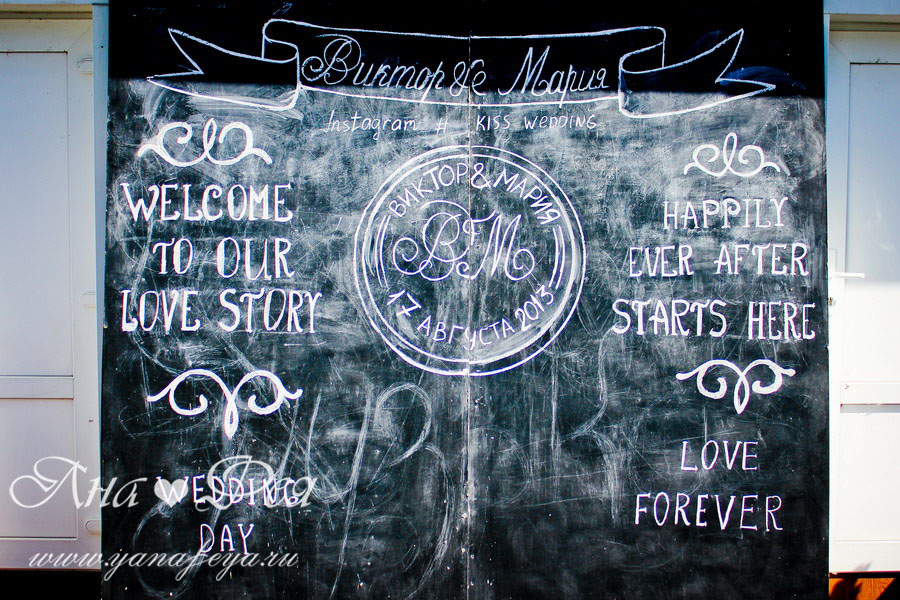 Виктор & Мария
Instagram # KISS WEDDING
WELCOME
TO OUR
LOVE STORY
ВИКТОР & МАРИЯ
17 АВГУСТА 2013
HAPPILY
EVER AFTER
STARTS HERE
WEDDING
DAY
LOVE
FOREVER
www.yanafeya.ru